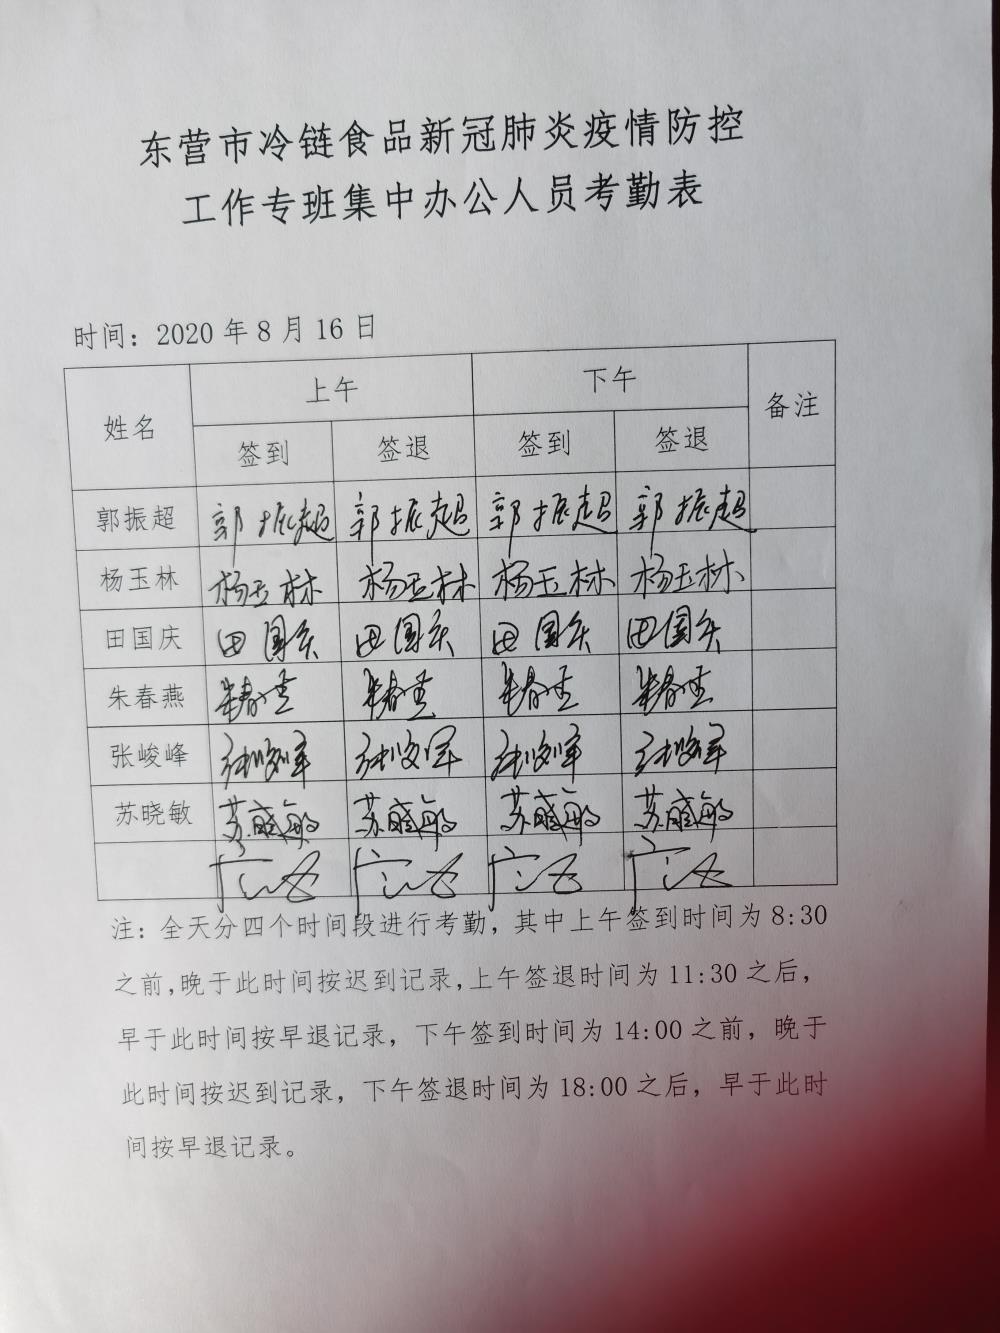 东营市冷链食品新冠肺炎疫情防控
工作专班集中办公人员考勤表
时间：2020年8月16日
姓名 上午 下午 备注
签到 签退 签到 签退
郭振超 郭振超 郭振超 郭振超 郭振超
杨玉林 杨玉林 杨玉林 杨玉林 杨玉林
田国庆 田国庆 田国庆 田国庆 田国庆
朱春燕 朱春燕 朱春燕 朱春燕 朱春燕
张峻峰 张峻峰 张峻峰 张峻峰 张峻峰
苏晓敏 苏晓敏 苏晓敏 苏晓敏 苏晓敏
注：全天分四个时间段进行考勤，其中上午签到时间为8:30
之前,晚于此时间按迟到记录,上午签退时间为11:30之后，
早于此时间按早退记录，下午签到时间为14:00之前，晚于
此时间按迟到记录，下午签退时间为18:00之后，早于此时
间按早退记录。